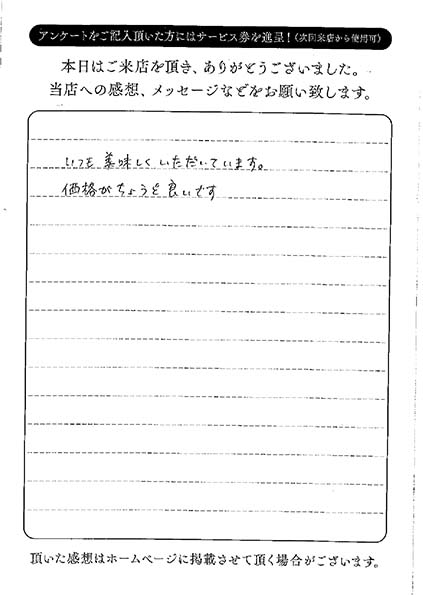 アンケートをご記入頂いた方にはサービス券を進呈!(次回来店から使用可)
本日はご来店を頂き、ありがとうございました。
当店への感想、メッセージなどをお願い致します。
いつも美味しくいただいています。
価格がちょうど良いです
頂いた感想はホームページに掲載させて頂く場合がございます。